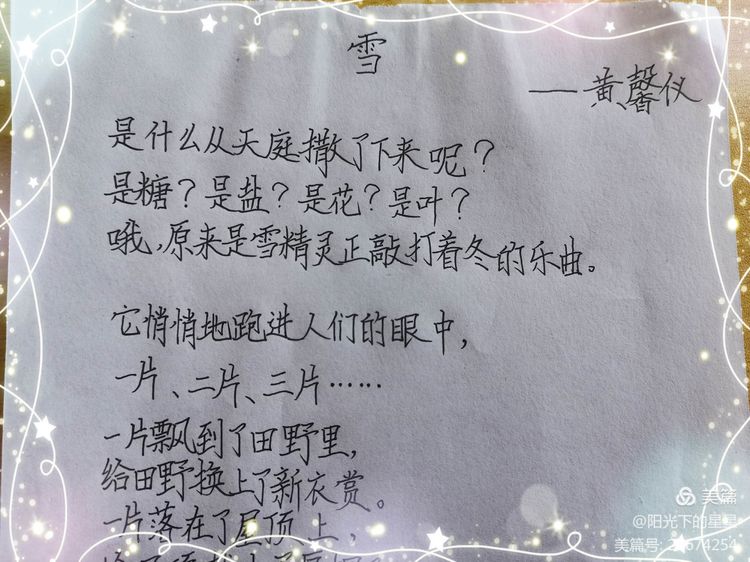 雪
——黄馨仪
是什么从天庭撒了下来呢？
是糖？是盐？是花？是叶？
哦，原来是雪精灵正敲打着冬的乐曲。
它悄悄地跑进人们的眼中，
一片、二片、三片……
一片飘到了田野里，
给田野换上了新衣赏。
一片落在了屋顶上，
美篇
@阳光下的星星
美篇号: